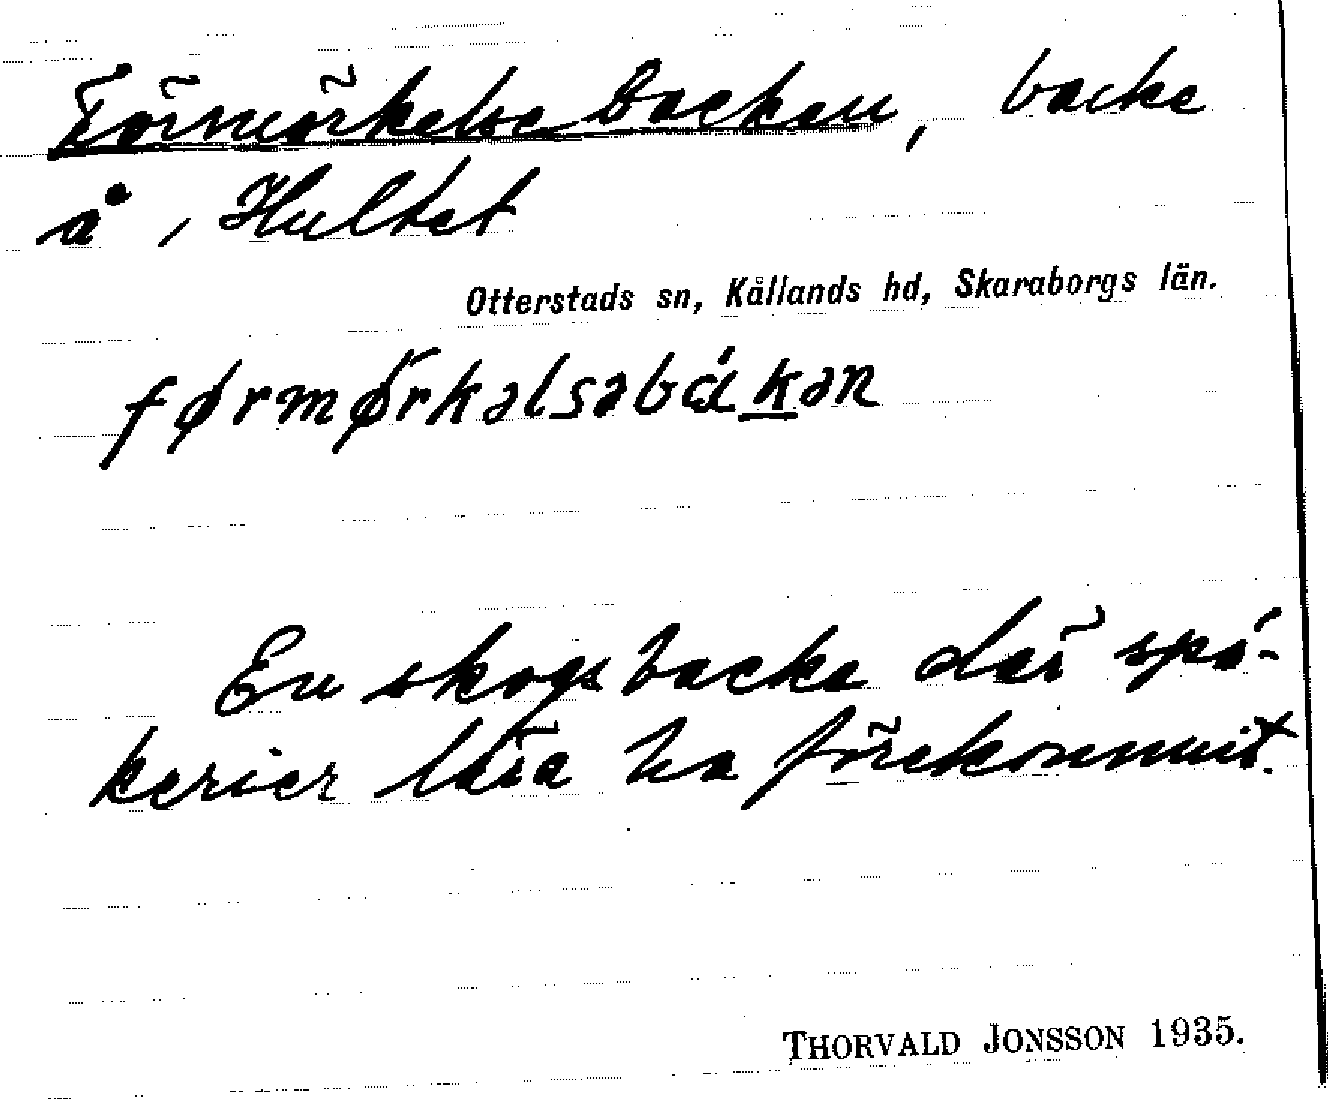 Förmörkelsebacken, backe
å, Hultet
Otterstads sn, Kållands hd, Skaraborgs län.
førmørkəlsəbákən
En skogsbacke där spö-
kerier lära ha förekommit.
THORVALD JONSSON 1935.